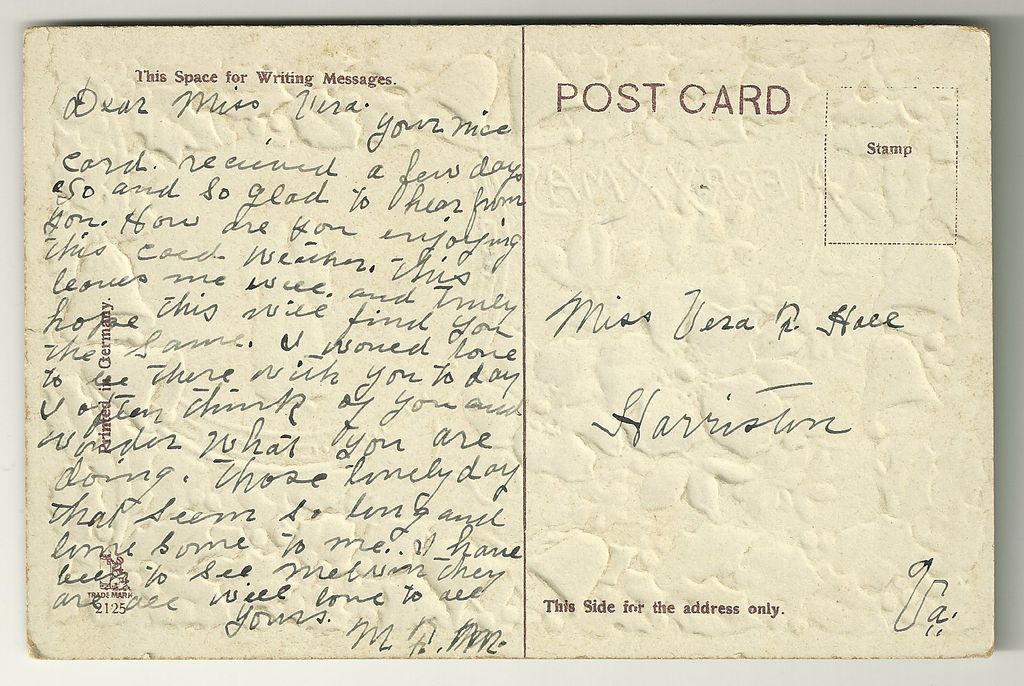 This Space for Writing Messages.
Dear Miss Vera.
your nice
card. recieved a few days
so and so glad to hear from
you. How are you enjoying
this coed weather. this
leaves me well. and truly
hope this will find you
the same. I would love
to be there with you to day
I often think of you and
wonder what you are
doing. those lonely day
that seem so long and
lonesome to me. I have
been to see they
are all well love to all
Yours. M.
Printed in Germany.
TRADE MARK
2125
POST CARD
Stamp
Miss Vera R. Hall
Harriston
Va.
This Side for the address only.